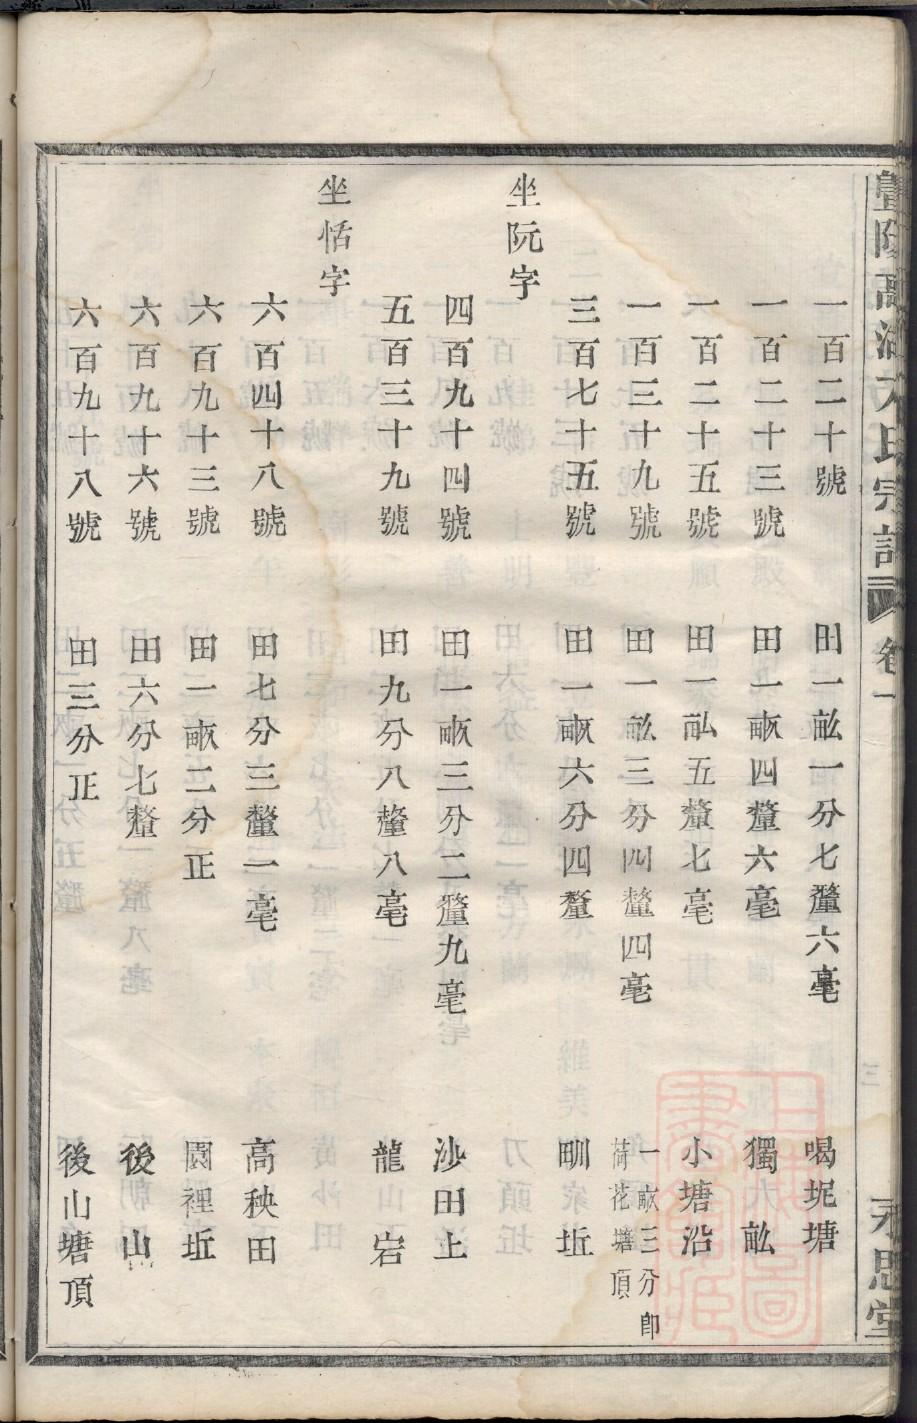 暨陽高湖方氏宗譜 卷一 三 永思堂
一百二十號 田二畆一分七釐六毫 喝坭塘
一百二十三號 田一畝四釐六毫 獨畆
一百二十五號 田一畆五釐七毫 小塘沿
一百三十九號 田一畆三分四釐四毫 一畝三分卽荷花塘頂
三百七十五號 田一畝六分四釐 畈坵
坐阮字
四百九十四號 田一畝三分二釐九毫 沙田上
五百三十九號 田九分八釐八毫 龍宕
坐恬字
六百四十八號 田七分三釐一毫 高秧田
六百九十三號 田一畝二分正 園裡坵
六百九十六號 田六分七釐 後山
六百九十八號 田三分正 後山塘頂